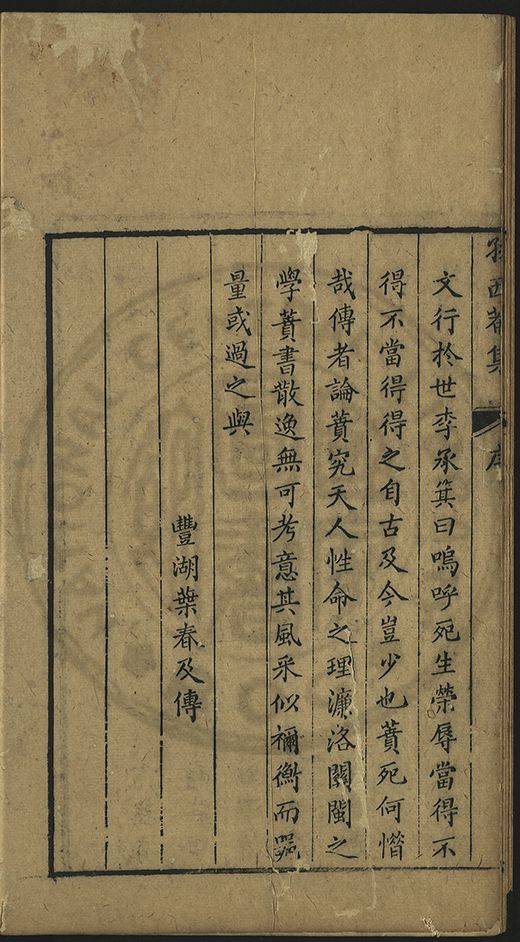 孫西菴集
序
文行於世李承箕曰嗚呼死生榮辱當得不
得不當得得之自古及今豈少也蕡死何憯
哉傳者論蕡究天人性命之理濂洛關閩之
學蕡書散逸無可考意其風采似禰衡而器
量或過之與
豐湖葉春及傳